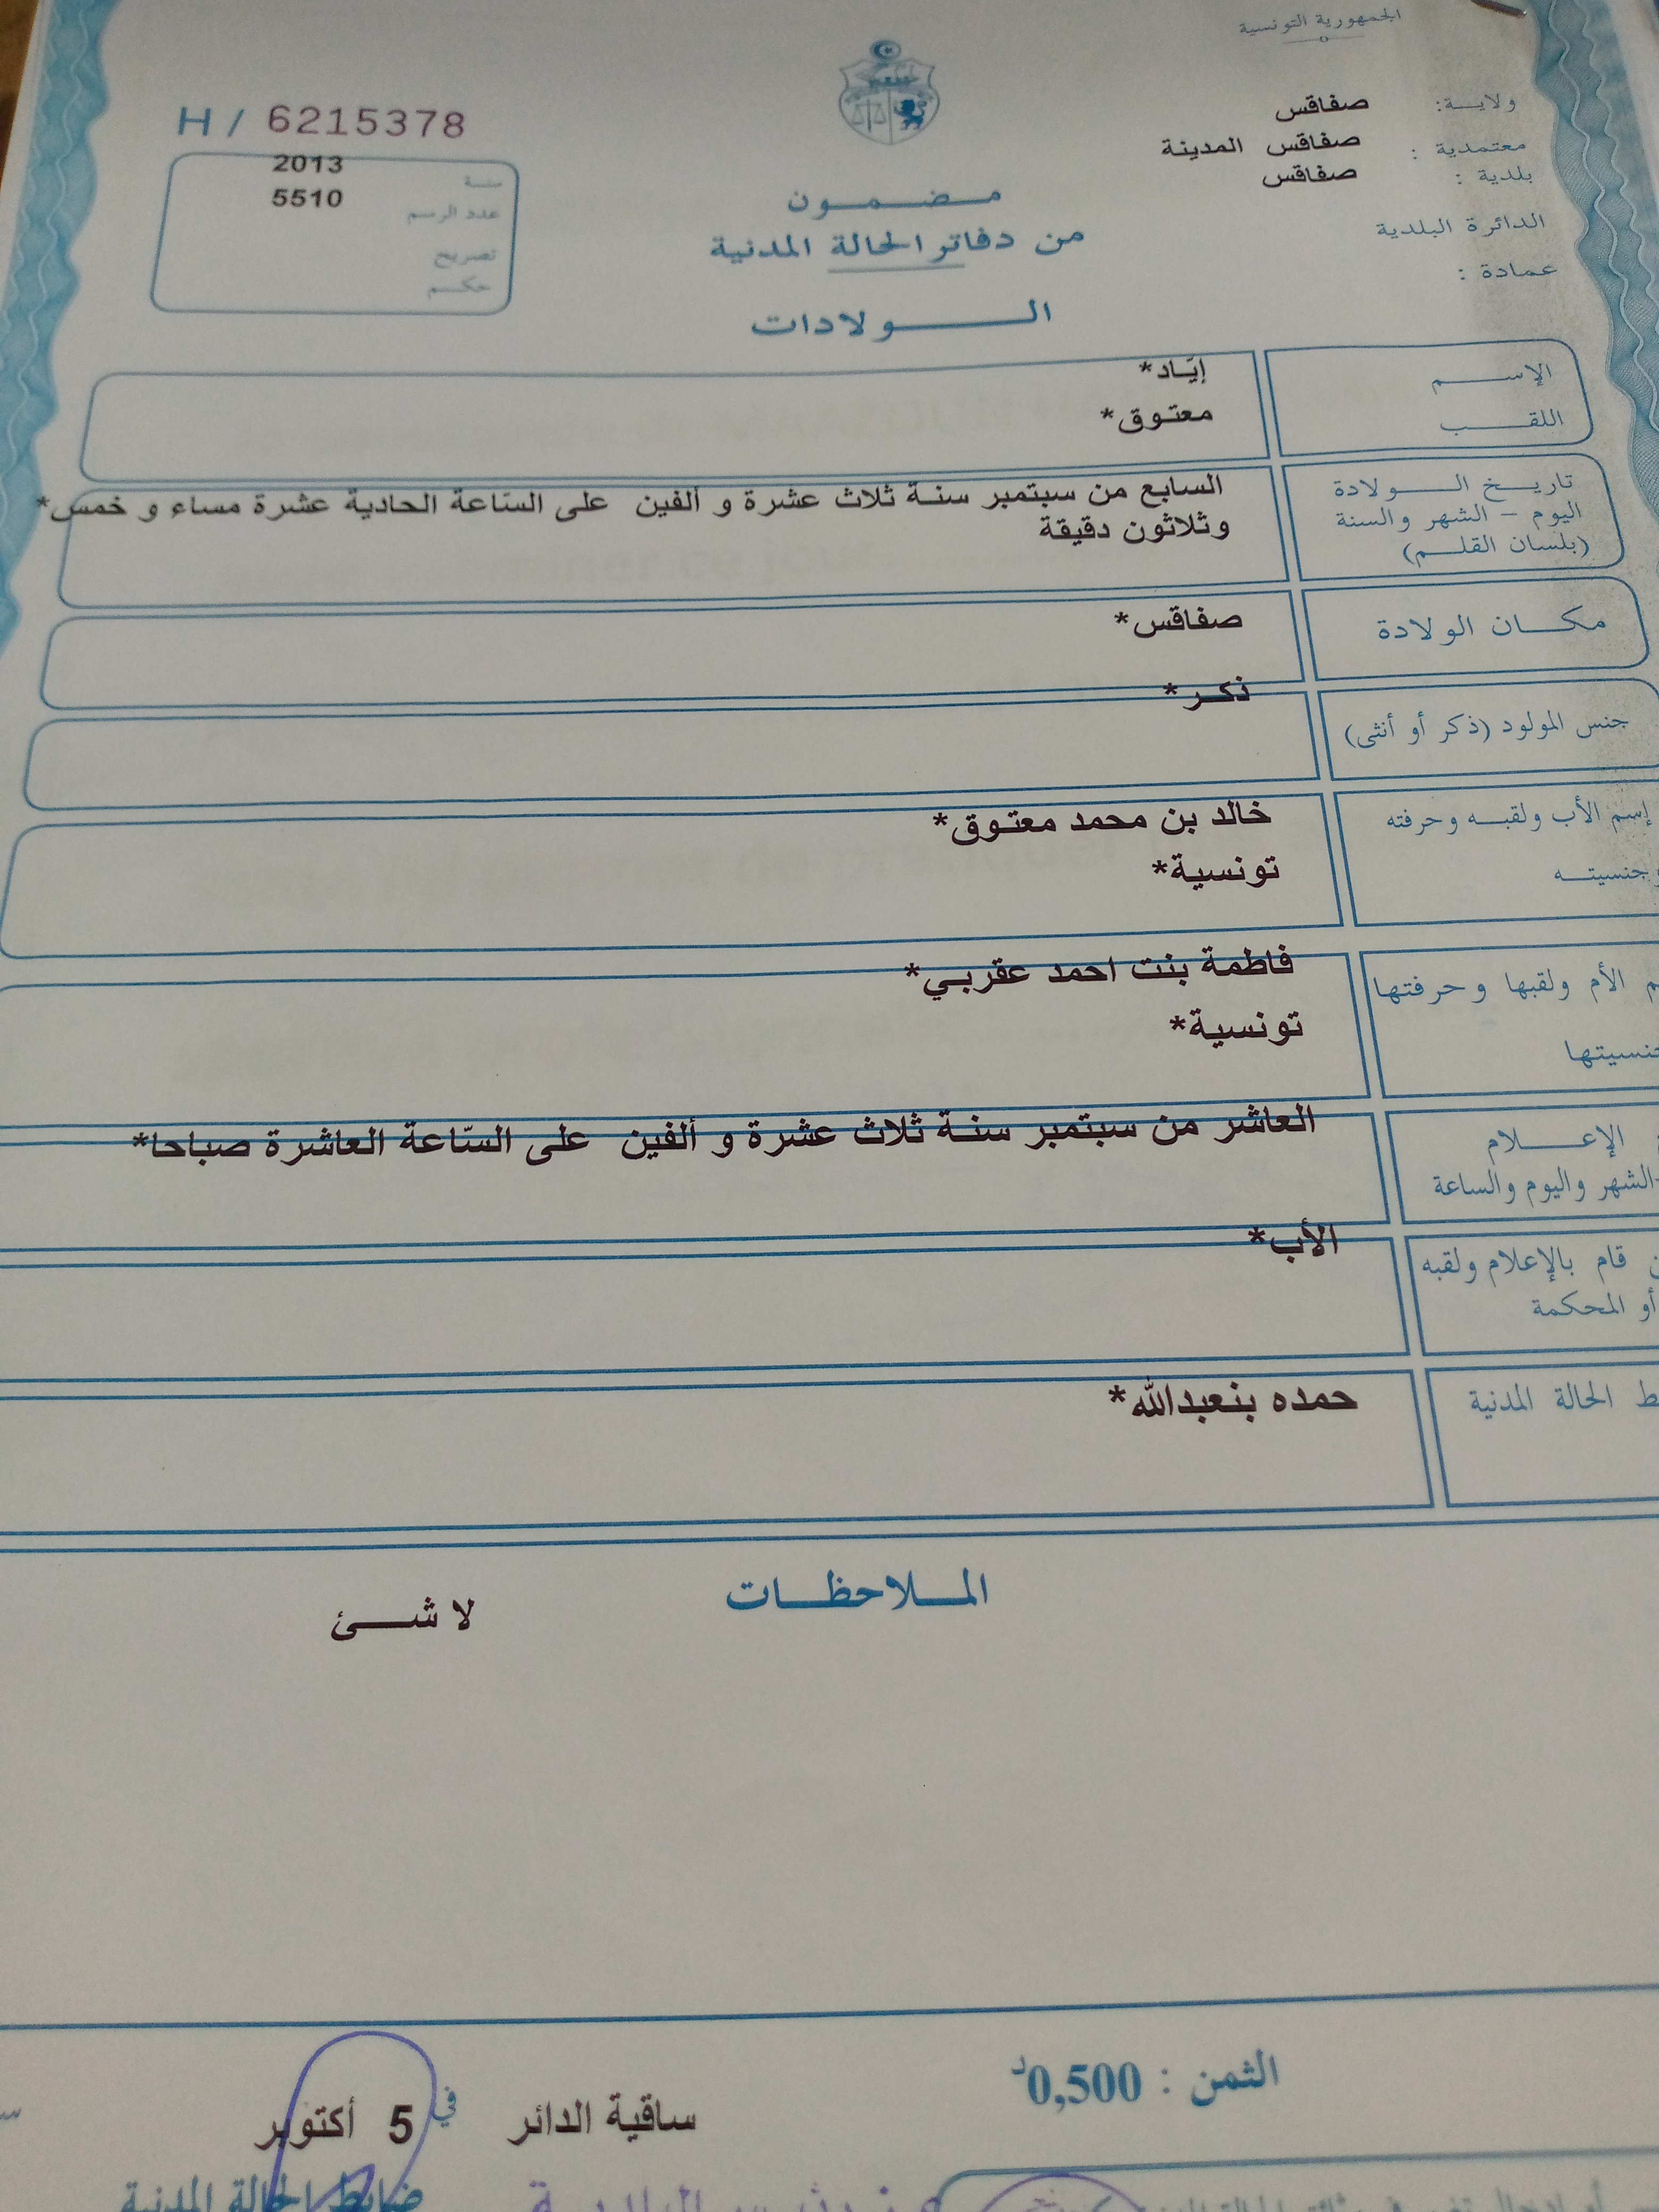 الجمهورية التونسية
ولاية: صفاقس
معتمدية : صفاقس المدينة
بلدية : صفاقس
الدائرة البلدية
عمادة :
H / 6215378
سنة 2013
عدد الرسم 5510
تصريح
حكم
مضمون
من دفاتر الحالة المدنية
الولادات
الإسم إيّاد*
اللقب معتوق*
تاريخ الولادة
اليوم - الشهر والسنة
(بلسان القلم)
السابع من سبتمبر سنة ثلاث عشرة و ألفين على السّاعة الحادية عشرة مساء و خمس*
وثلاثون دقيقة
مكان الولادة صفاقس*
جنس المولود (ذكر أو أنثى) ذكر*
إسم الأب ولقبه وحرفته خالد بن محمد معتوق*
وجنسيته تونسية*
م الأم ولقبها وحرفتها فاطمة بنت احمد عقربي*
جنسيتها تونسية*
الإعلام
الشهر واليوم والساعة
العاشر من سبتمبر سنة ثلاث عشرة و ألفين على السّاعة العاشرة صباحا*
قام بالإعلام ولقبه الأب*
أو المحكمة
ط الحالة المدنية حمده بنعبدالله*
الملاحظات
لا شئ
الثمن : 0,500د
ساقية الدائر في 5 أكتوبر
ضابط الحالة المدنية